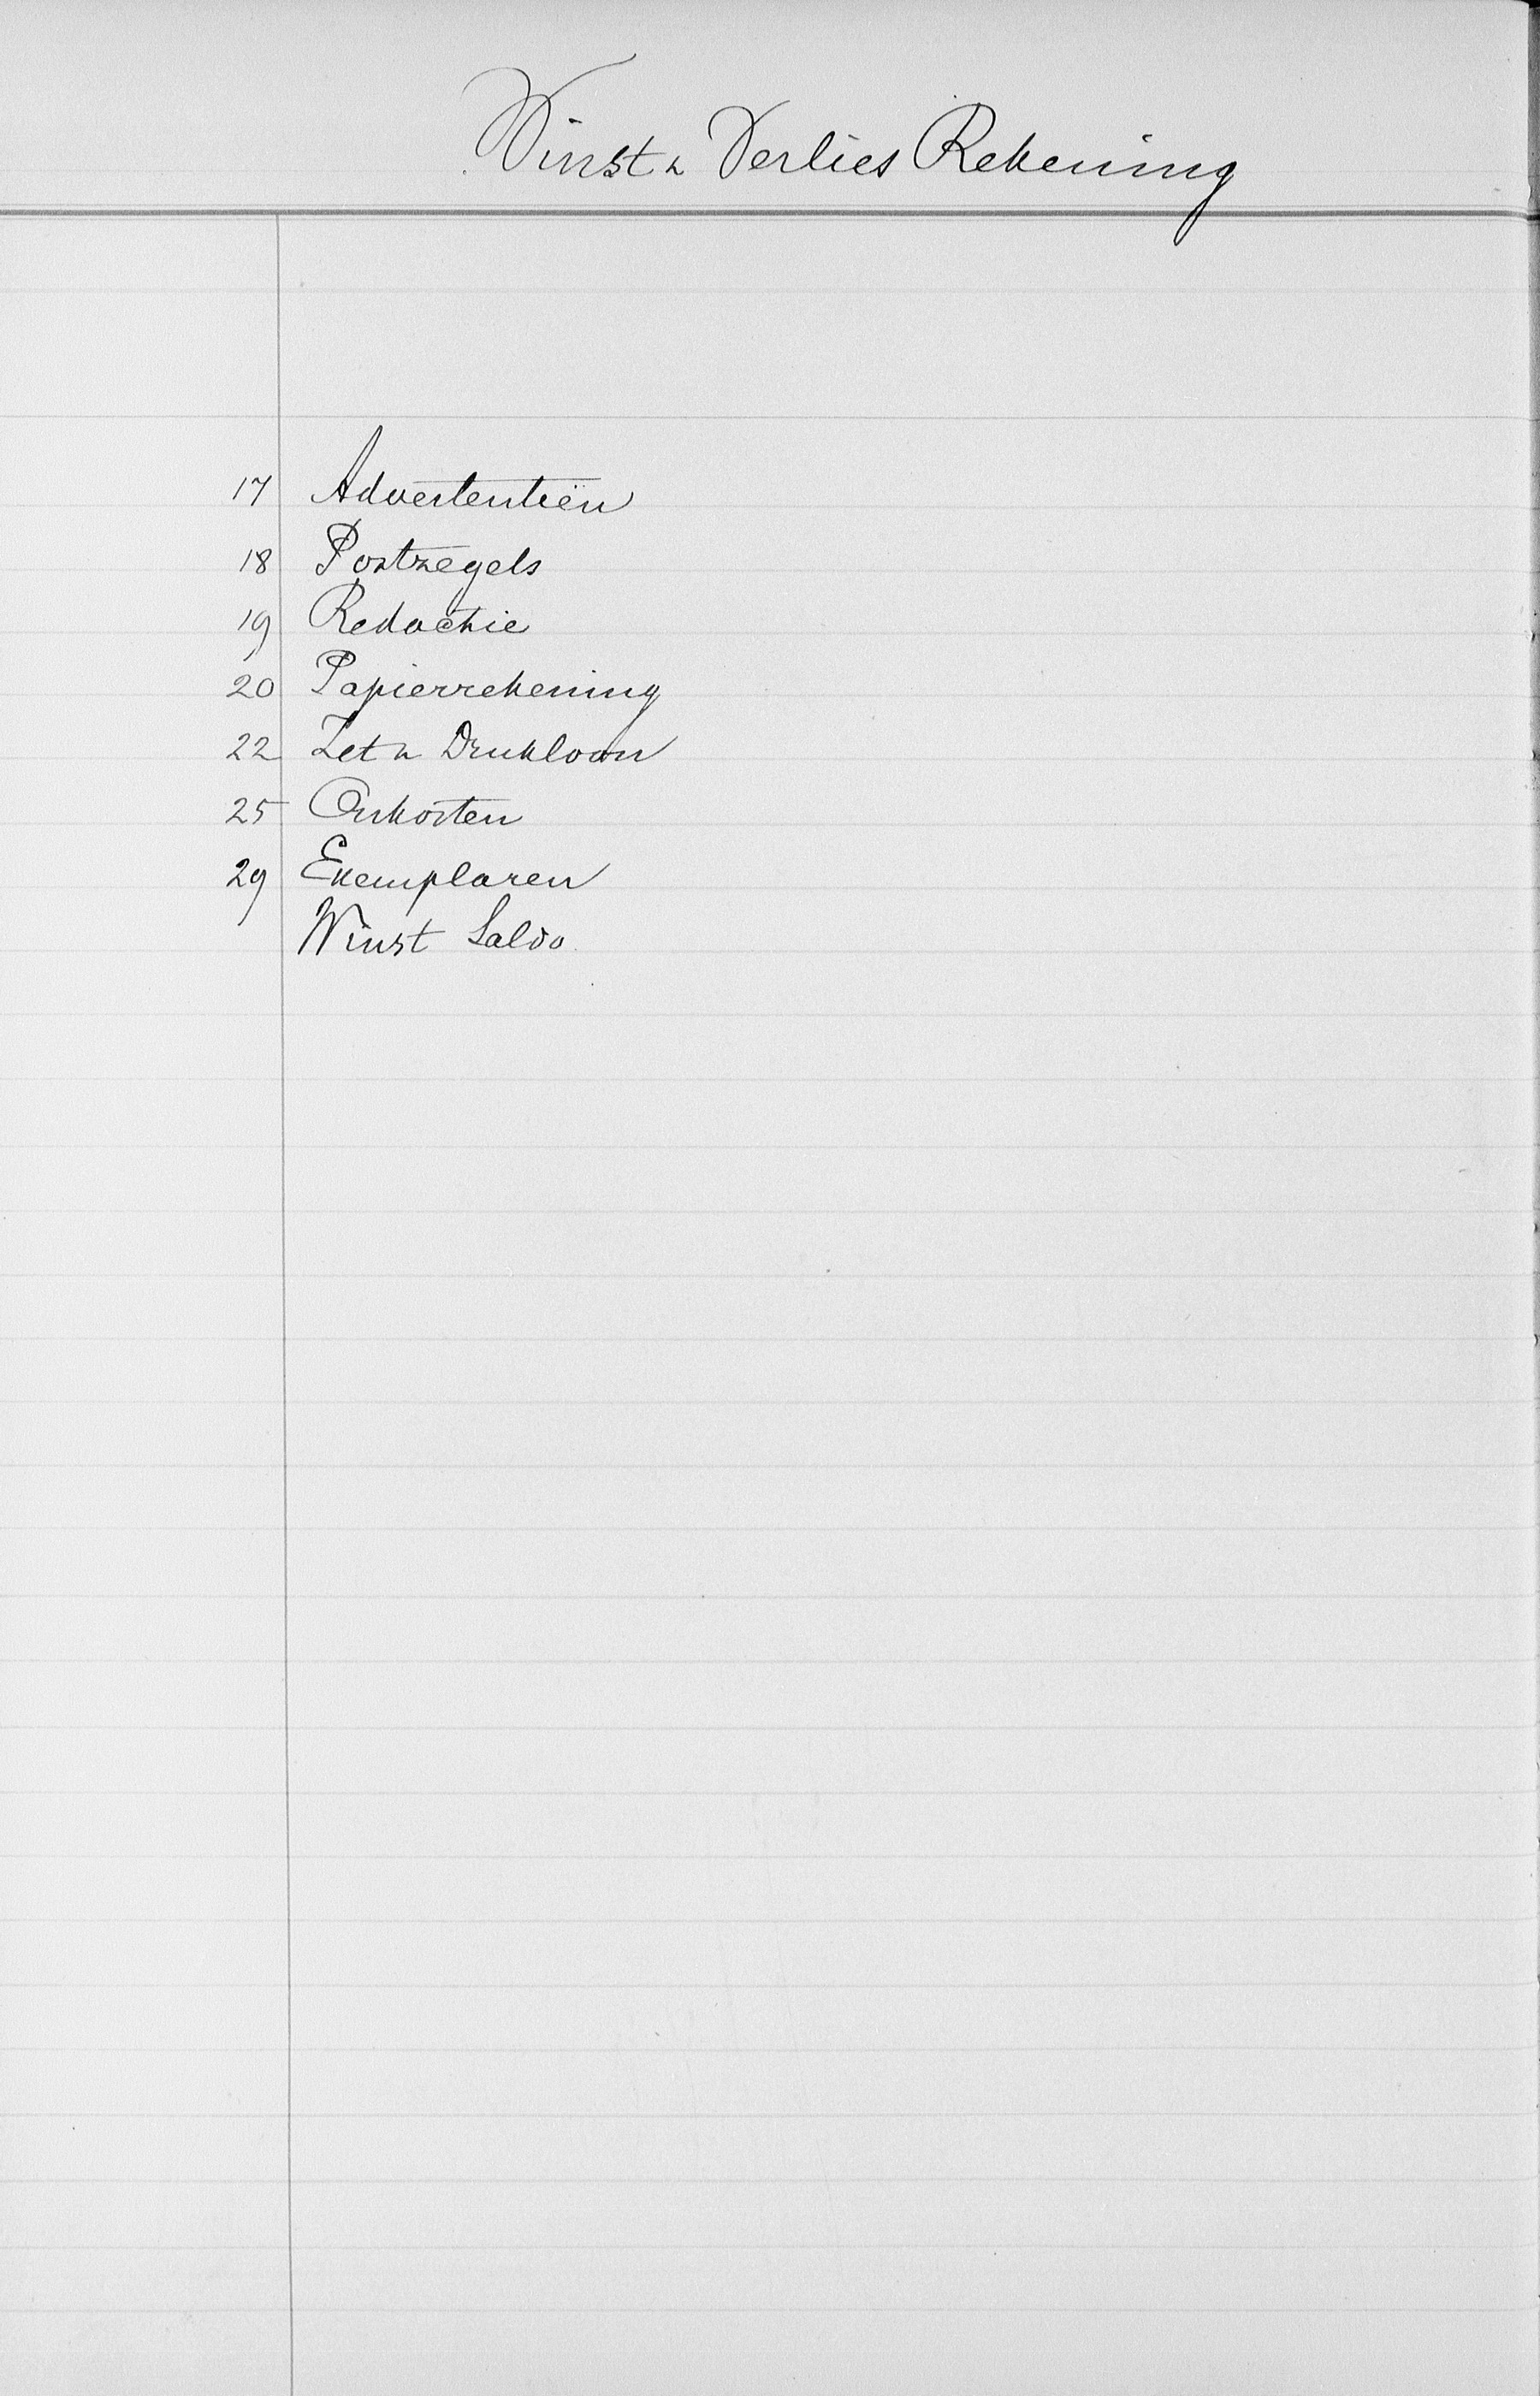 Winst & Verlies Rekening
17 Advertentiën
18 Postzegels
19 Redactie
20 Papierrekening
22 Zet & Drukloon
25 Onkosten
29 Exemplaren
Winst Saldo